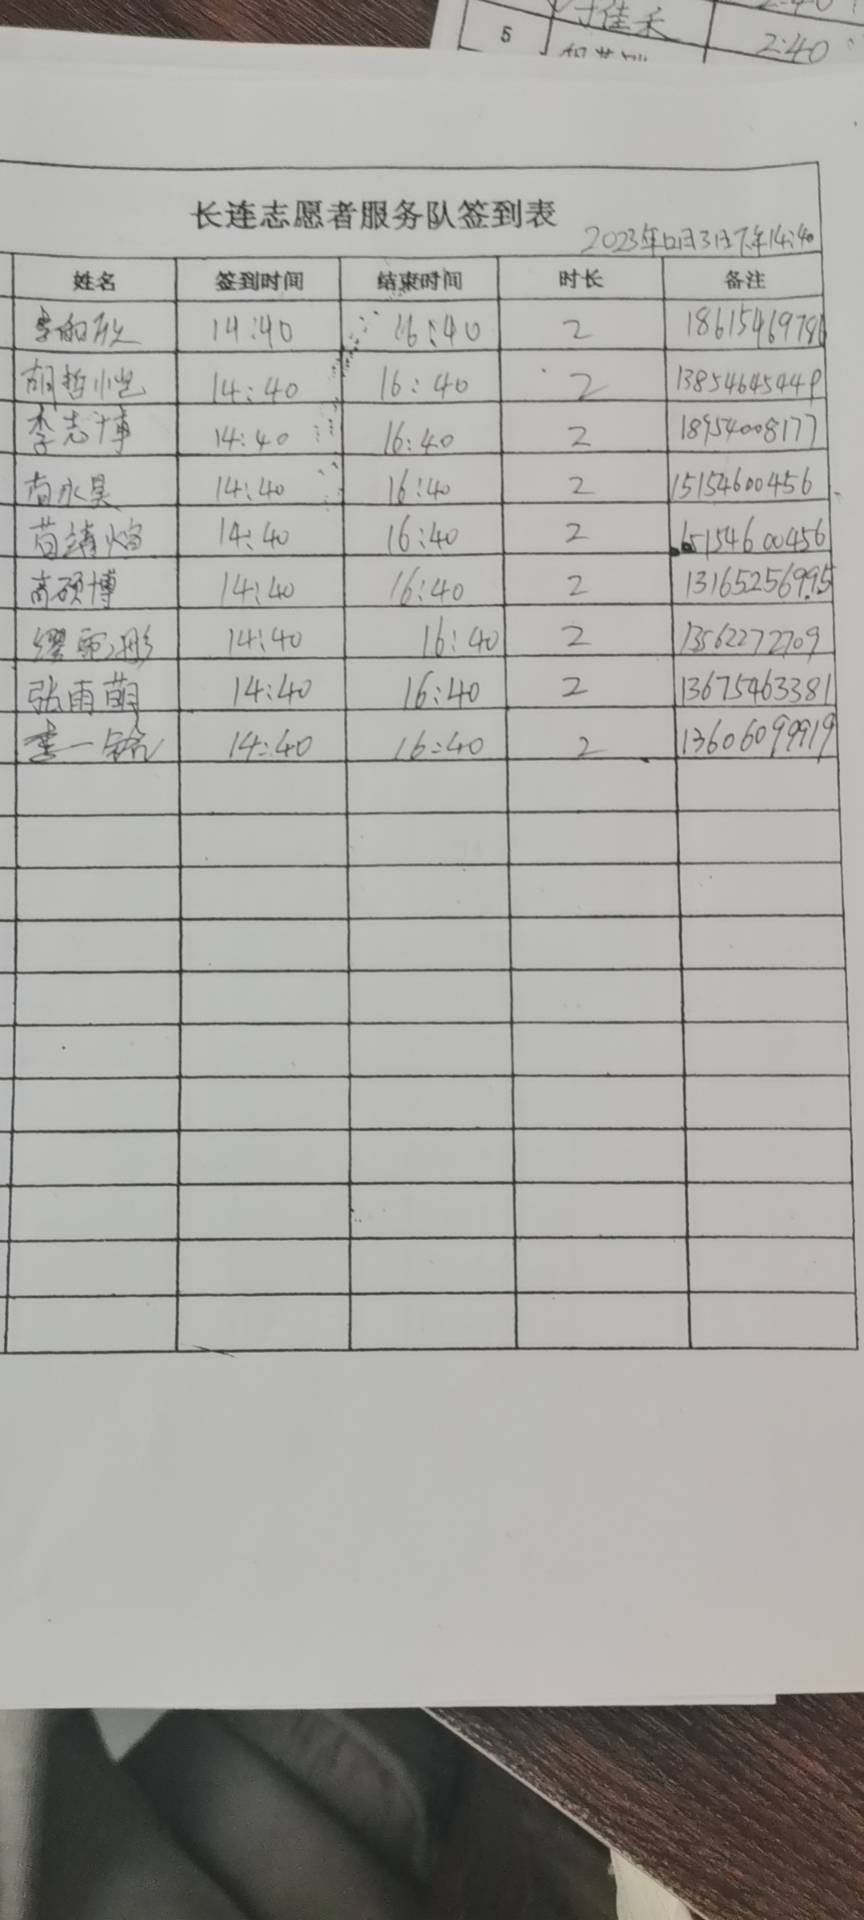 佳禾 2:40
5 2:40
长连志愿者服务队签到表
2023年12月3日下午14:40
姓名 签到时间 结束时间 时长 备注
14:40 16:40 2 1861546978
胡哲恺 14:40 16:40 2 13854645449
李志博 14:40 16:40 2 18954008177
尚永昊 14:40 16:40 2 15154600456
14:40 16:40 2 15154600456
高硕博 14:40 16:40 2 13165256995
14:40 16:40 2 13562272709
张雨萌 14:40 16:40 2 13675463381
李一铭 14:40 16:40 2 13606099919